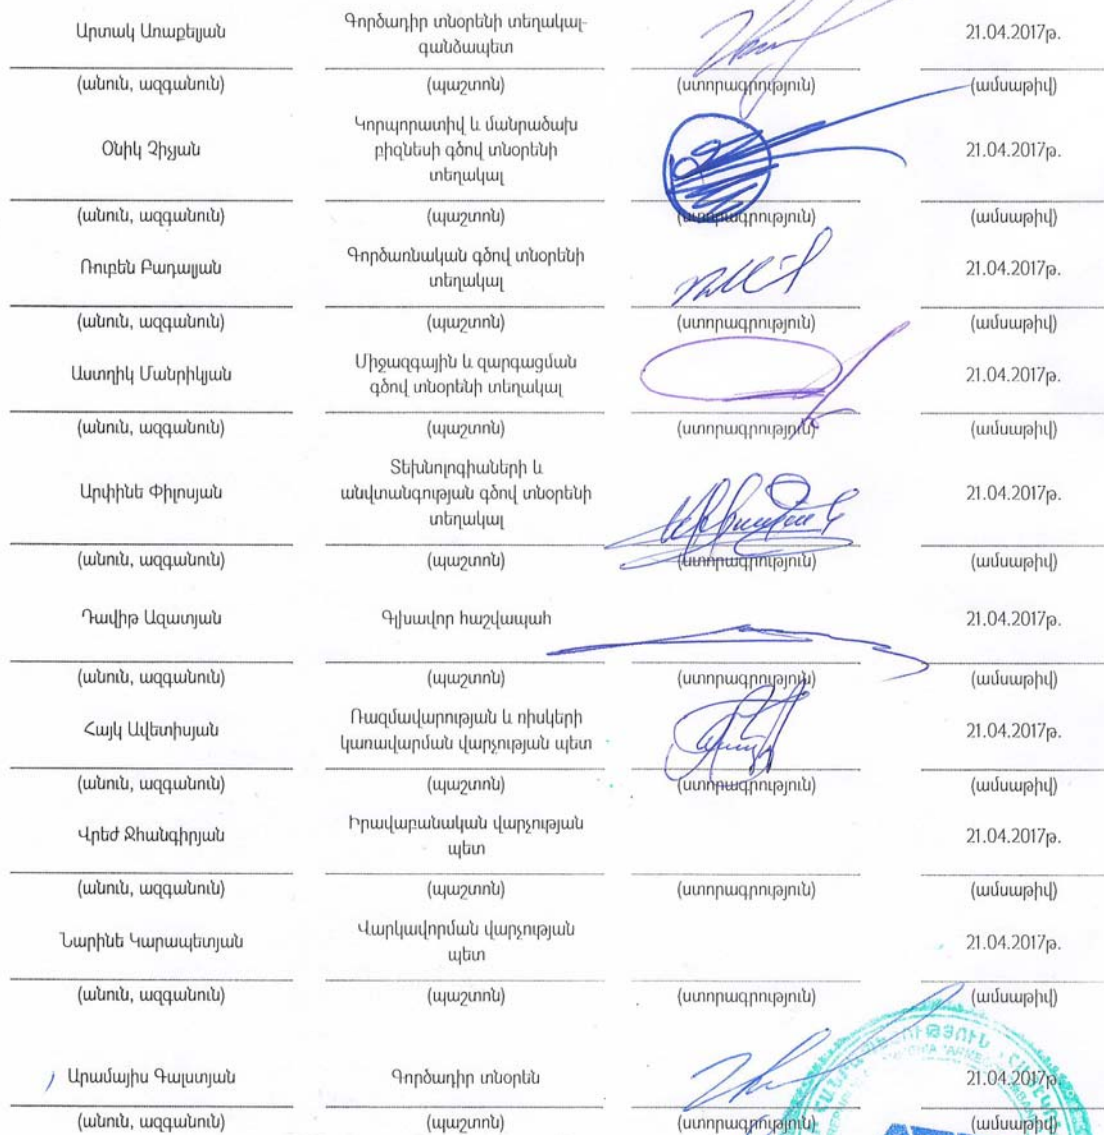 Արտակ Առաքելյան
Գործադիր տնօրենի տեղակալ-
գանձապետ
21.04.2017թ.
(անուն, ազգանուն) (պաշտոն) (ստորագրություն) (ամսաթիվ)
Օնիկ Չիչյան
Կորպորատիվ և մանրածախ
բիզնեսի գծով տնօրենի
տեղակալ
21.04.2017թ.
(անուն, ազգանուն) (պաշտոն) (ստորագրություն) (ամսաթիվ)
Ռուբեն Բադալյան
Գործառնական գծով տնօրենի
տեղակալ
21.04.2017թ.
(անուն, ազգանուն) (պաշտոն) (ստորագրություն) (ամսաթիվ)
Աստղիկ Մանրիկյան
Միջազգային և զարգացման
գծով տնօրենի տեղակալ
21.04.2017թ.
(անուն, ազգանուն) (պաշտոն) (ստորագրություն) (ամսաթիվ)
Արփինե Փիլոսյան
Տեխնոլոգիաների և
անվտանգության գծով տնօրենի
տեղակալ
21.04.2017թ.
(անուն, ազգանուն) (պաշտոն) (ստորագրություն) (ամսաթիվ)
Դավիթ Ազատյան
Գլխավոր հաշվապահ
21.04.2017թ.
(անուն, ազգանուն) (պաշտոն) (ստորագրություն) (ամսաթիվ)
Հայկ Ավետիսյան
Ռազմավարության և ռիսկերի
կառավարման վարչության պետ
21.04.2017թ.
(անուն, ազգանուն) (պաշտոն) (ստորագրություն) (ամսաթիվ)
Վրեժ Ջհանգիրյան
Իրավաբանական վարչության
պետ
21.04.2017թ.
(անուն, ազգանուն) (պաշտոն) (ստորագրություն) (ամսաթիվ)
Նարինե Կարապետյան
Վարկավորման վարչության
պետ
21.04.2017թ.
(անուն, ազգանուն) (պաշտոն) (ստորագրություն) (ամսաթիվ)
Արամայիս Գալստյան
Գործադիր տնօրեն
21.04.2017թ.
(անուն, ազգանուն) (պաշտոն) (ստորագրություն) (ամսաթիվ)